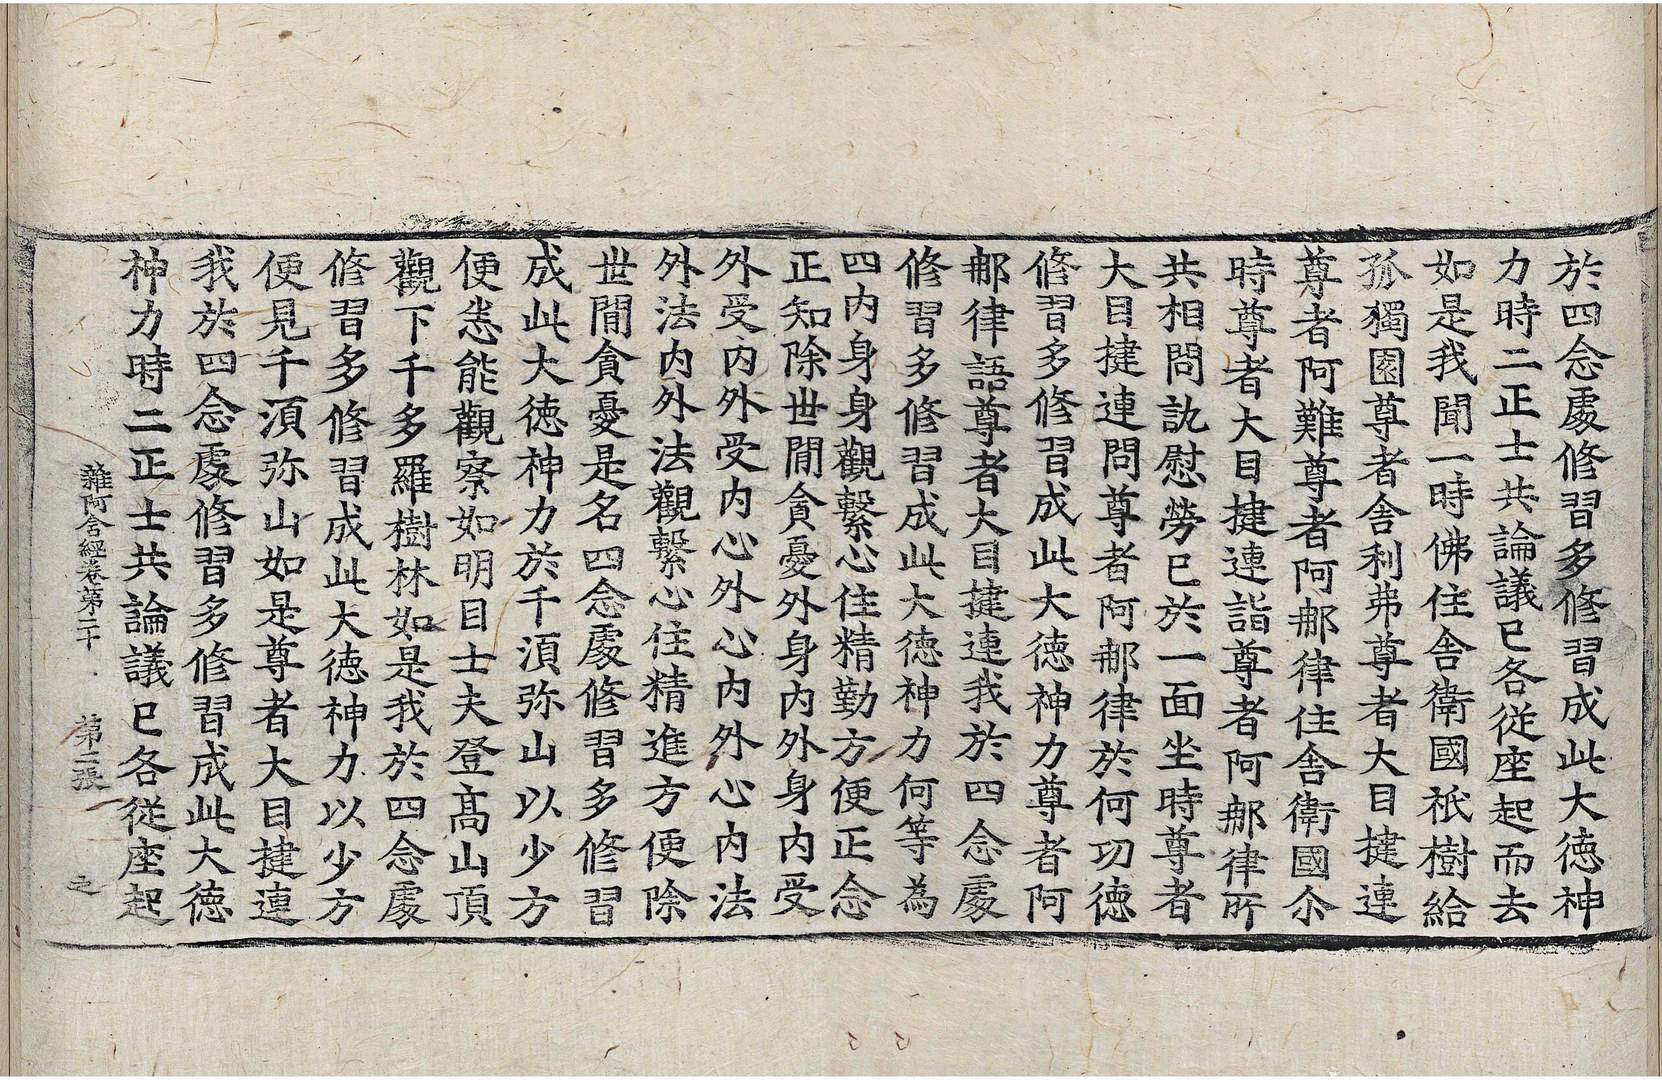 於四念處修習多修習成此大德神
力時二正士共論議已各從座起而去
如是我聞一時佛住舍衛國祇樹給
孤獨園尊者舍利弗尊者大目揵連
尊者阿難尊者阿那律住舍衛國尒
時尊者大目揵連詣尊者阿那律所
共相問訊慰勞已於一面坐時尊者
大目揵連問尊者阿那律於何功德
修習多修習成此大德神力尊者阿
那律語尊者大目揵連我於四念處
修習多修習成此大德神力何等為
四內身身觀繫心住精勤方便正念
正知除世閒貪憂外身內外身內受
外受內外受內心外心內外心內法
外法內外法觀繫心住精進方便除
世閒貪憂是名四念處修習多修習
成此大德神力於千湏弥山以少方
便悉能觀察如明目士夫登高山頂
觀下千多羅樹林如是我於四念處
修習多修習成此大德神力以少方
便見千湏弥山如是尊者大目揵連
我於四念處修習多修習成此大德
神力時二正士共論議已各從座起
雜阿含經卷第二十 第二張 之